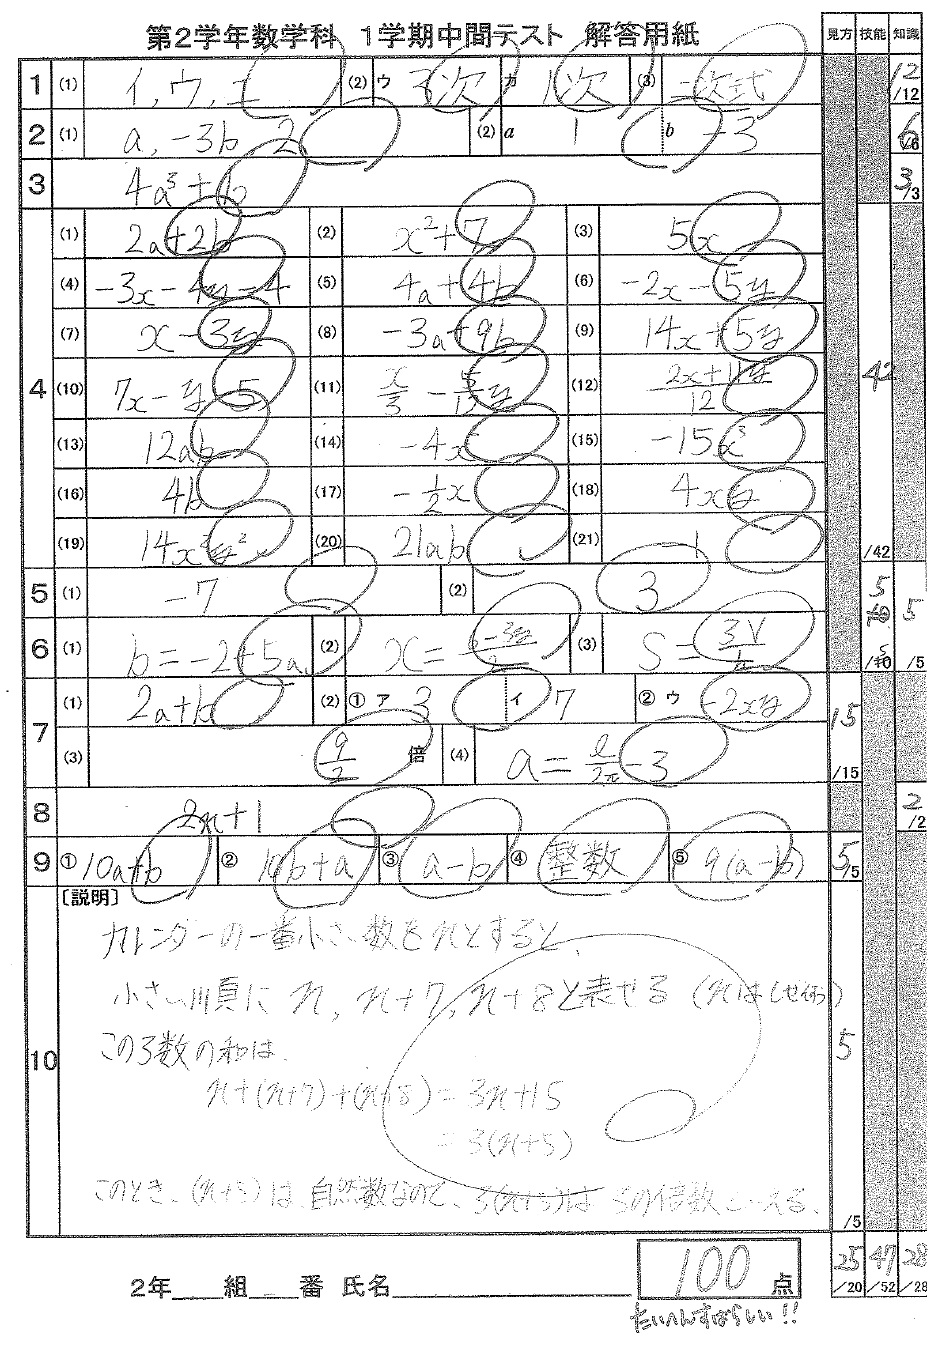 第2学年数学科 1学期中間テスト 解答用紙
見方 技能 知識
1 (1) イ,ウ,エ (2) ウ 3次 カ 1次 (3) 二次式 12 /12
2 (1) a, -3b, 2 (2) a 1 b -3 6 /6
3 4a³+b 3 /3
4 (1) 2a+2b (2) x²+7 (3) 5x
(4) -3x-4y-4 (5) 4a+4b (6) -2x-5y
(7) x-3y (8) -3a+9b (9) 14x+5y
(10) 7x-y-5 (11) (12) 2x+11y/12 42
(13) 12ab (14) (15) -15x³
(16) 4b (17) -1/2x (18) 4xy
(19) 14x²y² (20) 21ab (21) -1 /42
5 (1) -7 (2) 3 5 5
6 (1) b=-2+5a (2) x= (3) S=3V/h /5
7 (1) 2a+b (2) ① ア 3 イ 7 ② ウ -2xy 15
(3) 9/2 倍 (4) a=ℓ/2π-3 /15
8 2n+1 2 /2
9 ① 10a+b ② 10b+a ③ a-b ④ 整数 ⑤ 9(a-b) 5 /5
10 〔説明〕
カレンダーの一番小さい数をnとすると、
小さい順に n, n+7, n+8と表せる
この3数の和は、
n+(n+7)+(n+8)=3n+15
=3(n+5)
このとき、(n+5)は、自然数なので、3(n+5)は 3の倍数といえる、
5 /5
25 47 28
/20 /52 /28
2年 組 番 氏名 100 点
たいへんすばらしい!!